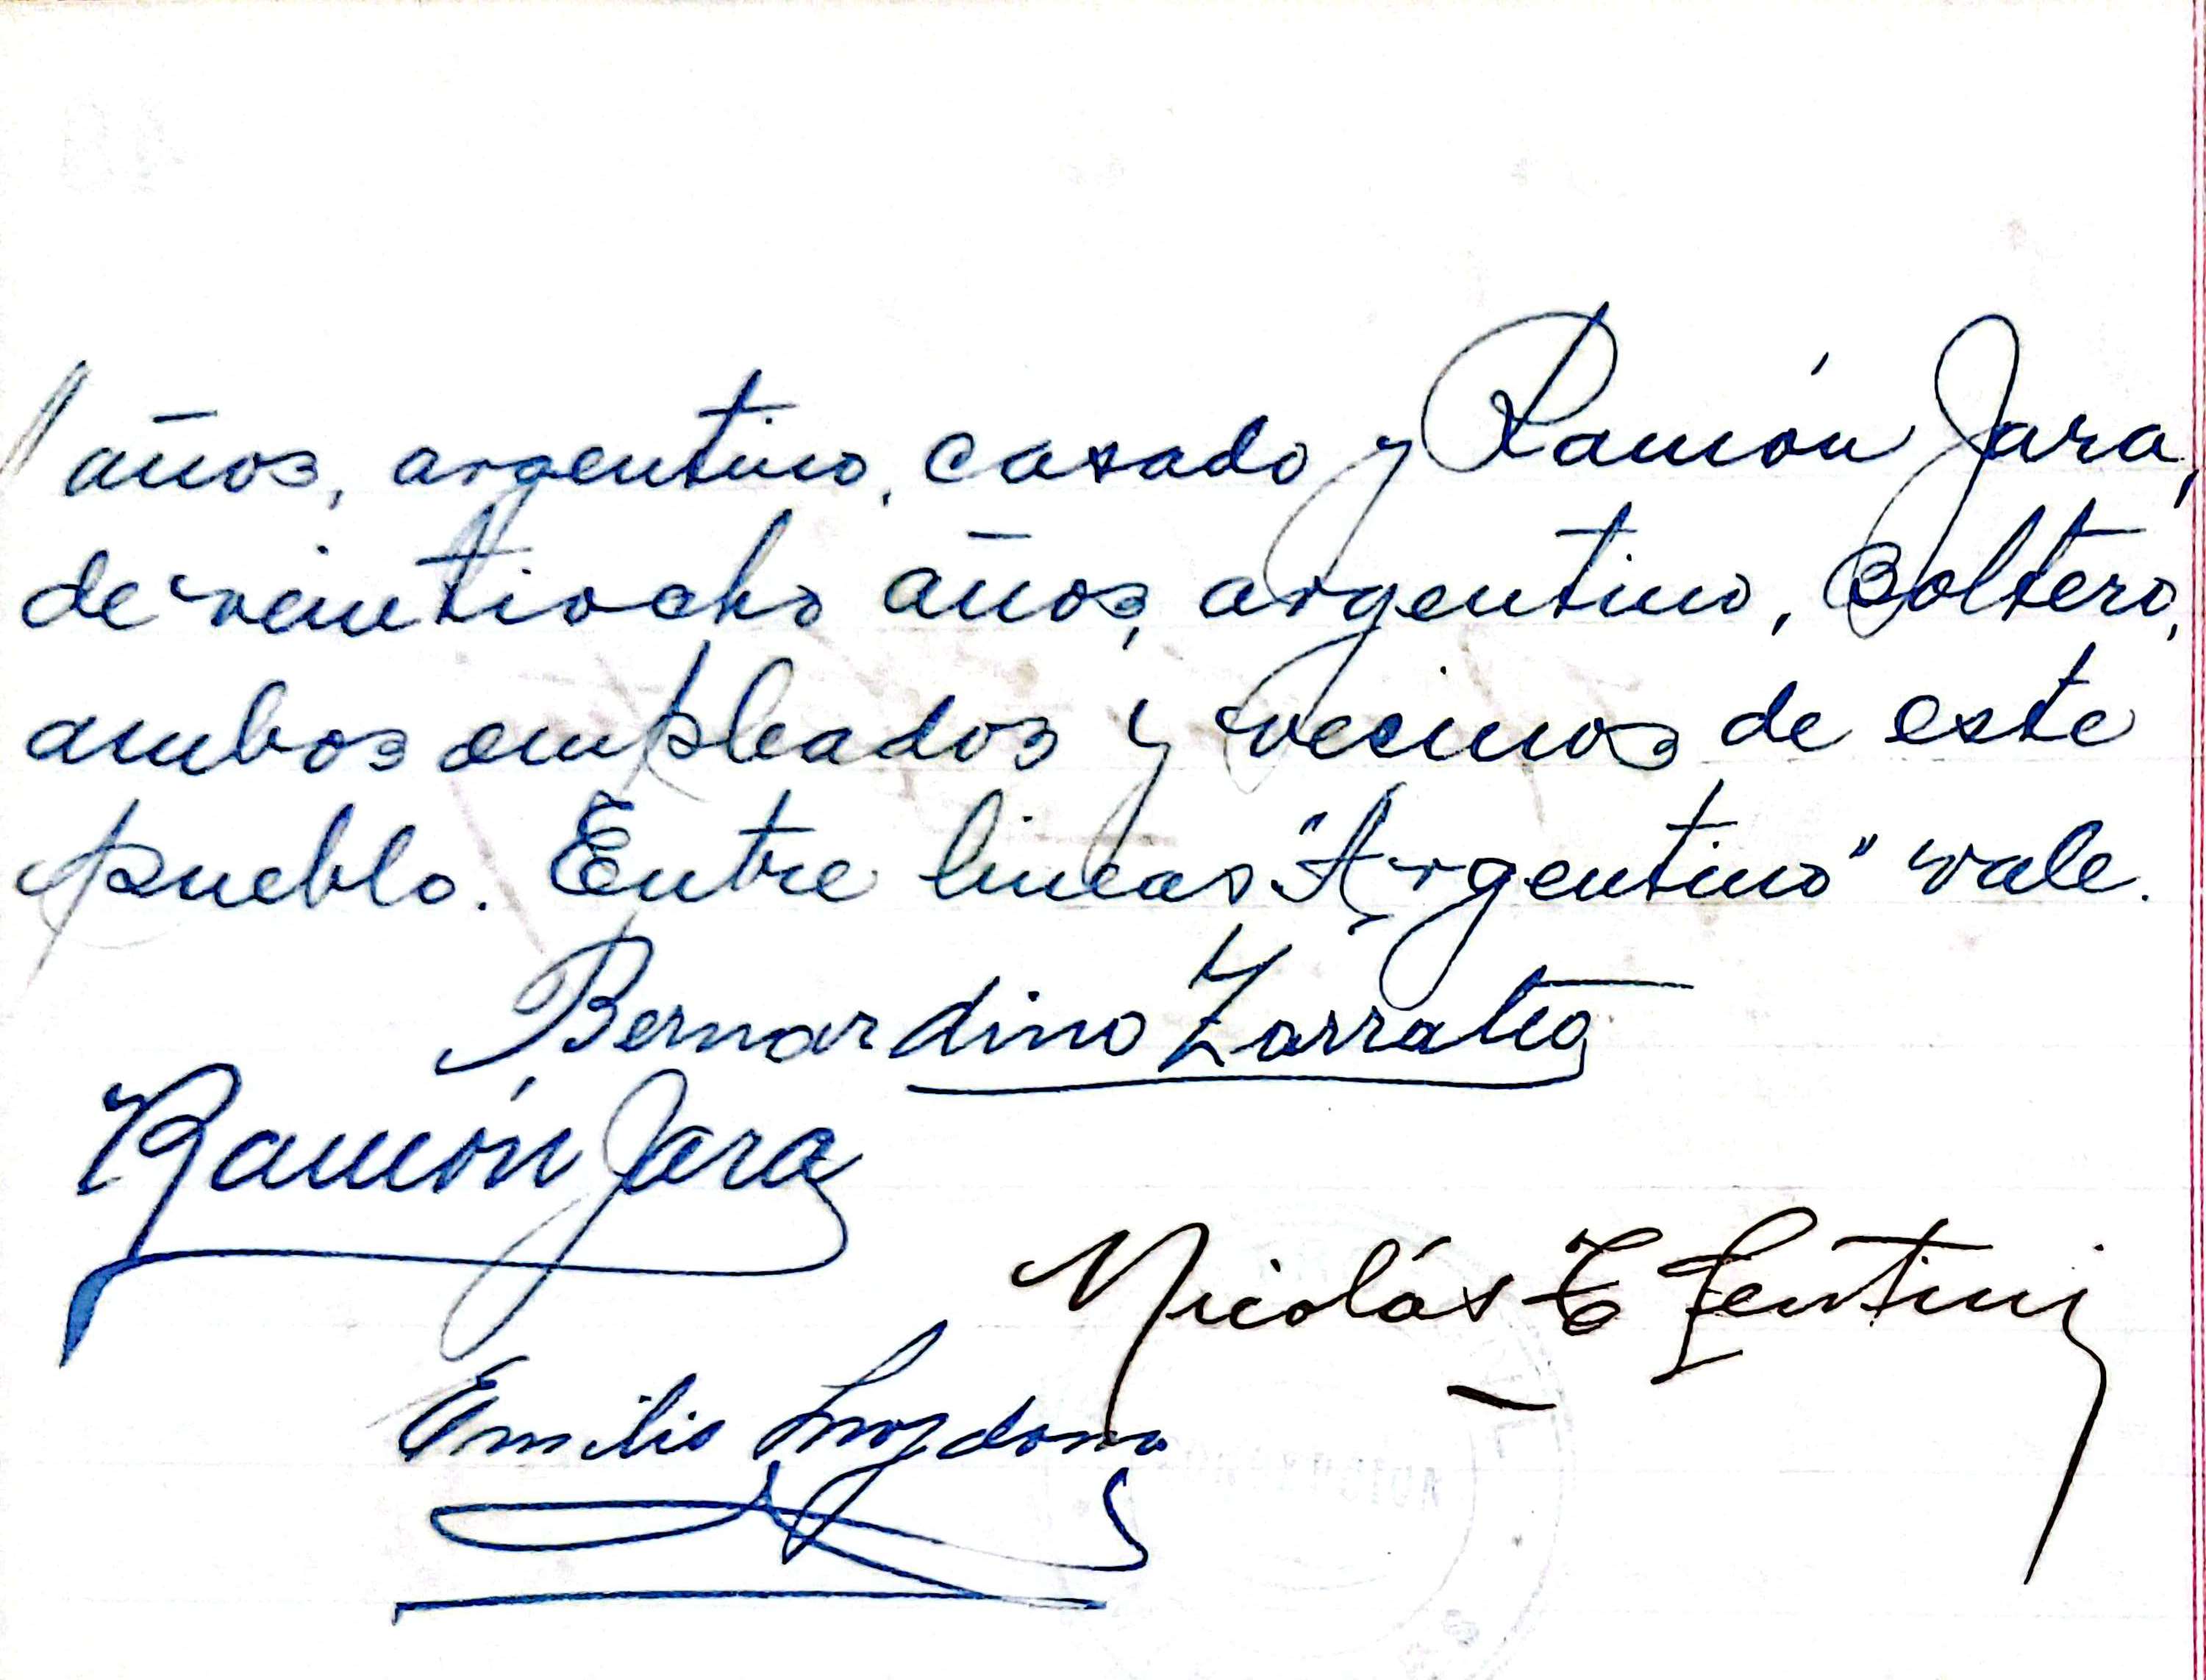 años, argentino, casado y Ramón Jara,
de veintiocho años, argentino, soltero,
ambos empleados y vecinos de este
pueblo. Entre lineas "Argentino" vale.
Bernardino Zarratea
Ramón Jara
Nicolás
Emilio